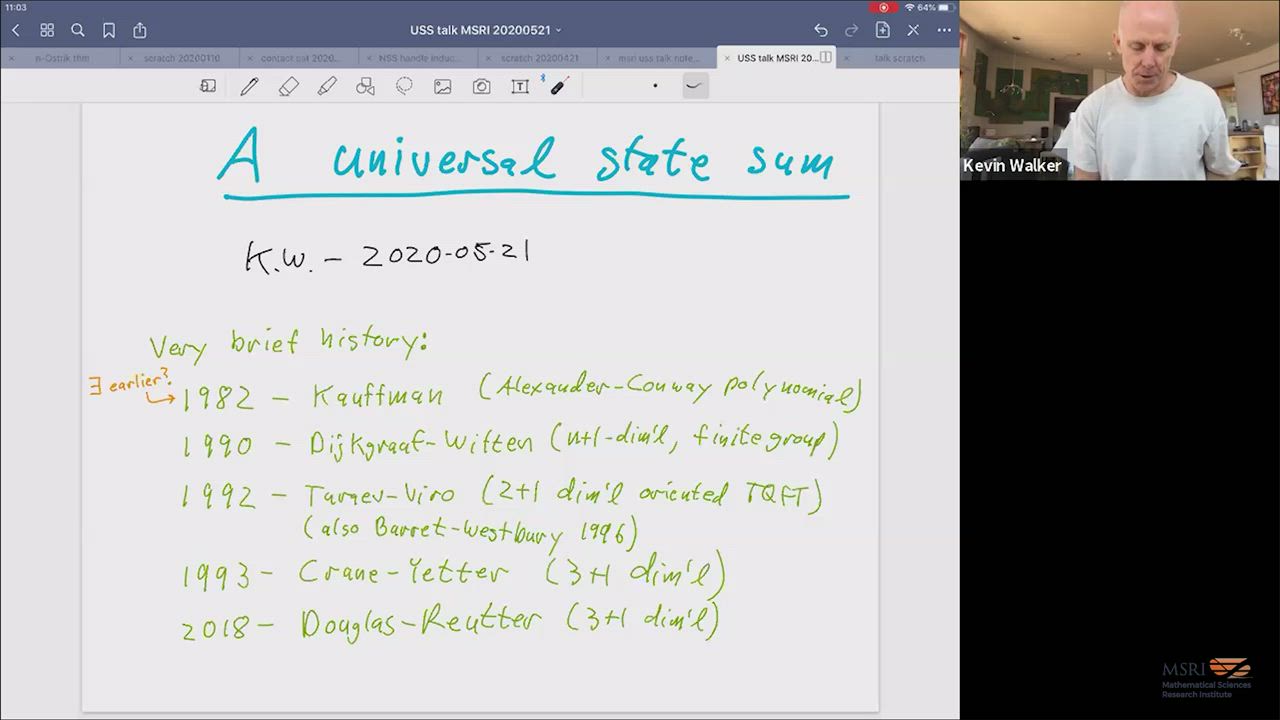 11:03
64%
USS talk MSRI 20200521
n-Ostrik thm
scratch 20200110
contact cat 2020...
NSS handle induc...
scratch 20200421
msri uss talk note...
USS talk MSRI 20...
talk scratch
A universal state sum
K.W. – 2020-05-21
Very brief history:
∃ earlier?
1982 – Kauffman (Alexander-Conway polynomial)
1990 – Dijkgraaf-Witten (n+1-dim'l, finite group)
1992 – Turaev-Viro (2+1 dim'l oriented TQFT)
(also Barret-Westbury 1996)
1993 – Crane-Yetter (3+1 dim'l)
2018 – Douglas-Reutter (3+1 dim'l)
Kevin Walker
MSRI
Mathematical Sciences
Research Institute